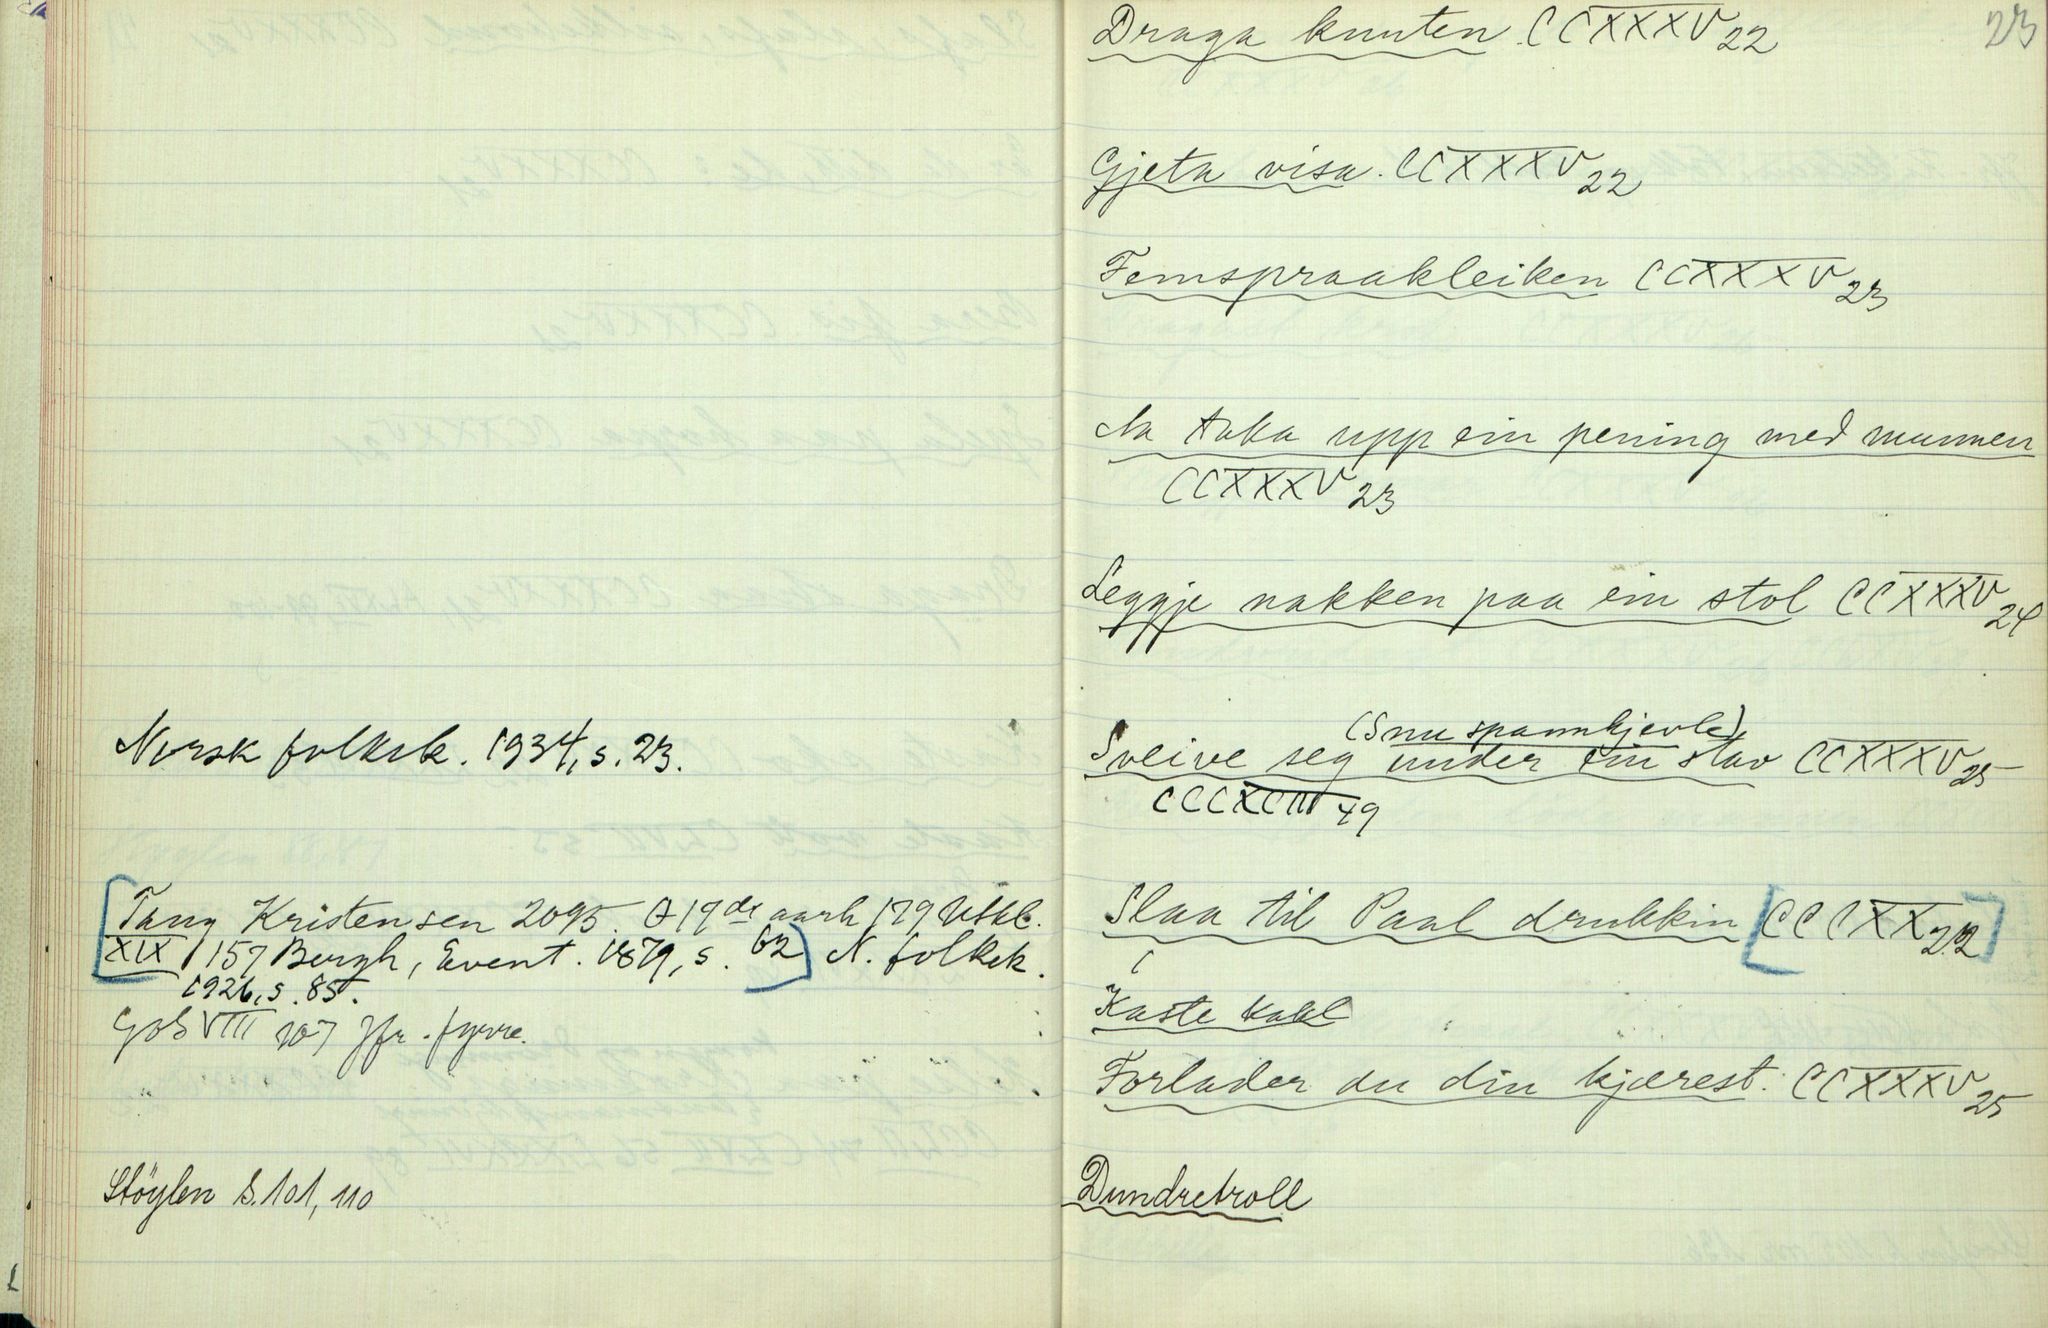 Norsk folkek. 1934, s. 23.
Tang Kristensen 2095. 17de aarh 179
XIX 157 Bergh, Event. 1879, s. 62 N. folkek.
1926, s. 85.
VIII 107 Jfr. fyrre.
Støylen s. 101, 110
23
Draga knuten. CCXXXV 22
Gjeta visa. CCXXXV 22
Femspraakleiken CCXXXV 23
Aa taka upp ein pening med munnen
CCXXXV 23
Leggje nakken paa ein stol CCXXXV 24
(Snu spannkjevle)
Sveive seg under ein stav CCXXXV 25
CCCXCIII 49
Slaa til Paal drukkin CCCXX 22
Kaste kakl
Forlader du din kjærest. CCXXXV 25
Dundretroll